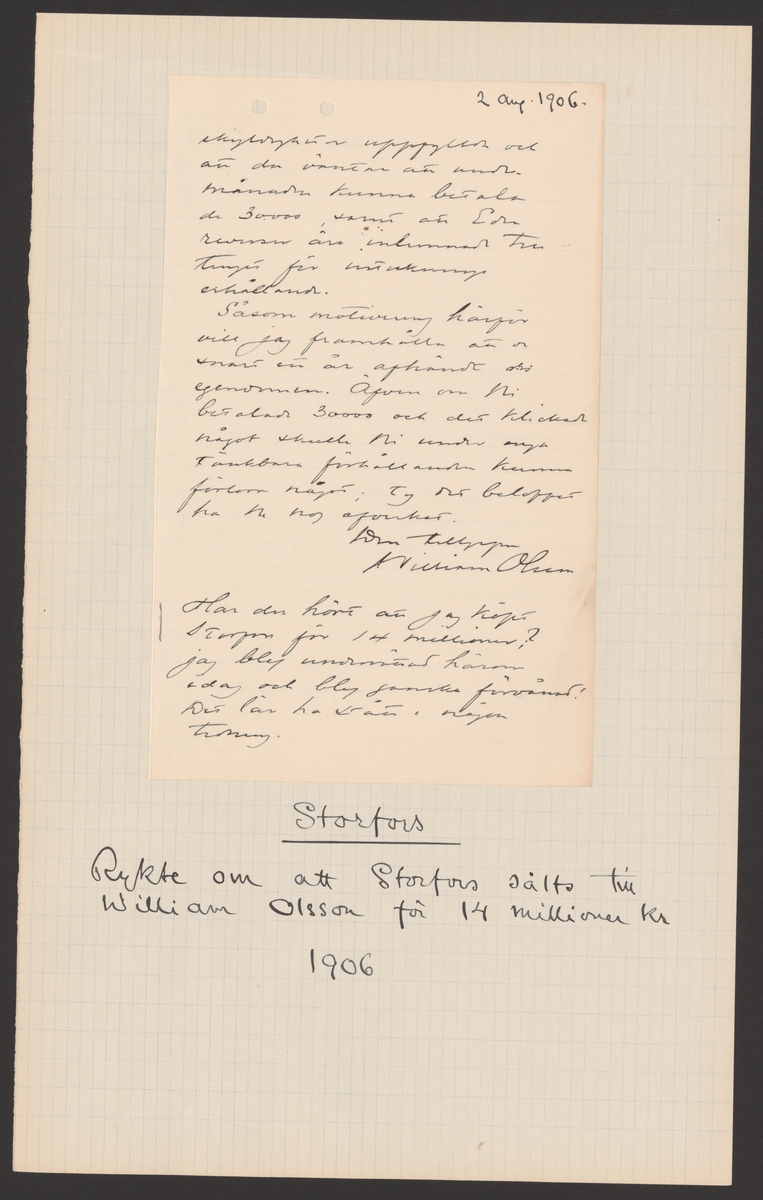 2 aug. 1906.
skyldigheter uppfyllda och
att du väntar att under
månaden kunna betala
de 30000, samt att Edra
reverser äro inlemnade till
för
erhållande.
Såsom motivering härför
vill jag framhålla att de
snart ett år afhändt sig
egendomen. Äfven om Ni
betalade 30000 och det klickade
något skulle Ni under inga
tänkbara förhållanden kunna
förlora något; ty det beloppet
ha Ni nog
Din tillgifne
William Olsson
Har du hört att jag köpt
Storfors för 14 millioner?
jag blef underrättad härom
idag och blef ganska förvånad!
Det lär ha stått i någon
tidning.
Storfors
Rykte om att Storfors sålts till
William Olsson för 14 millioner kr
1906